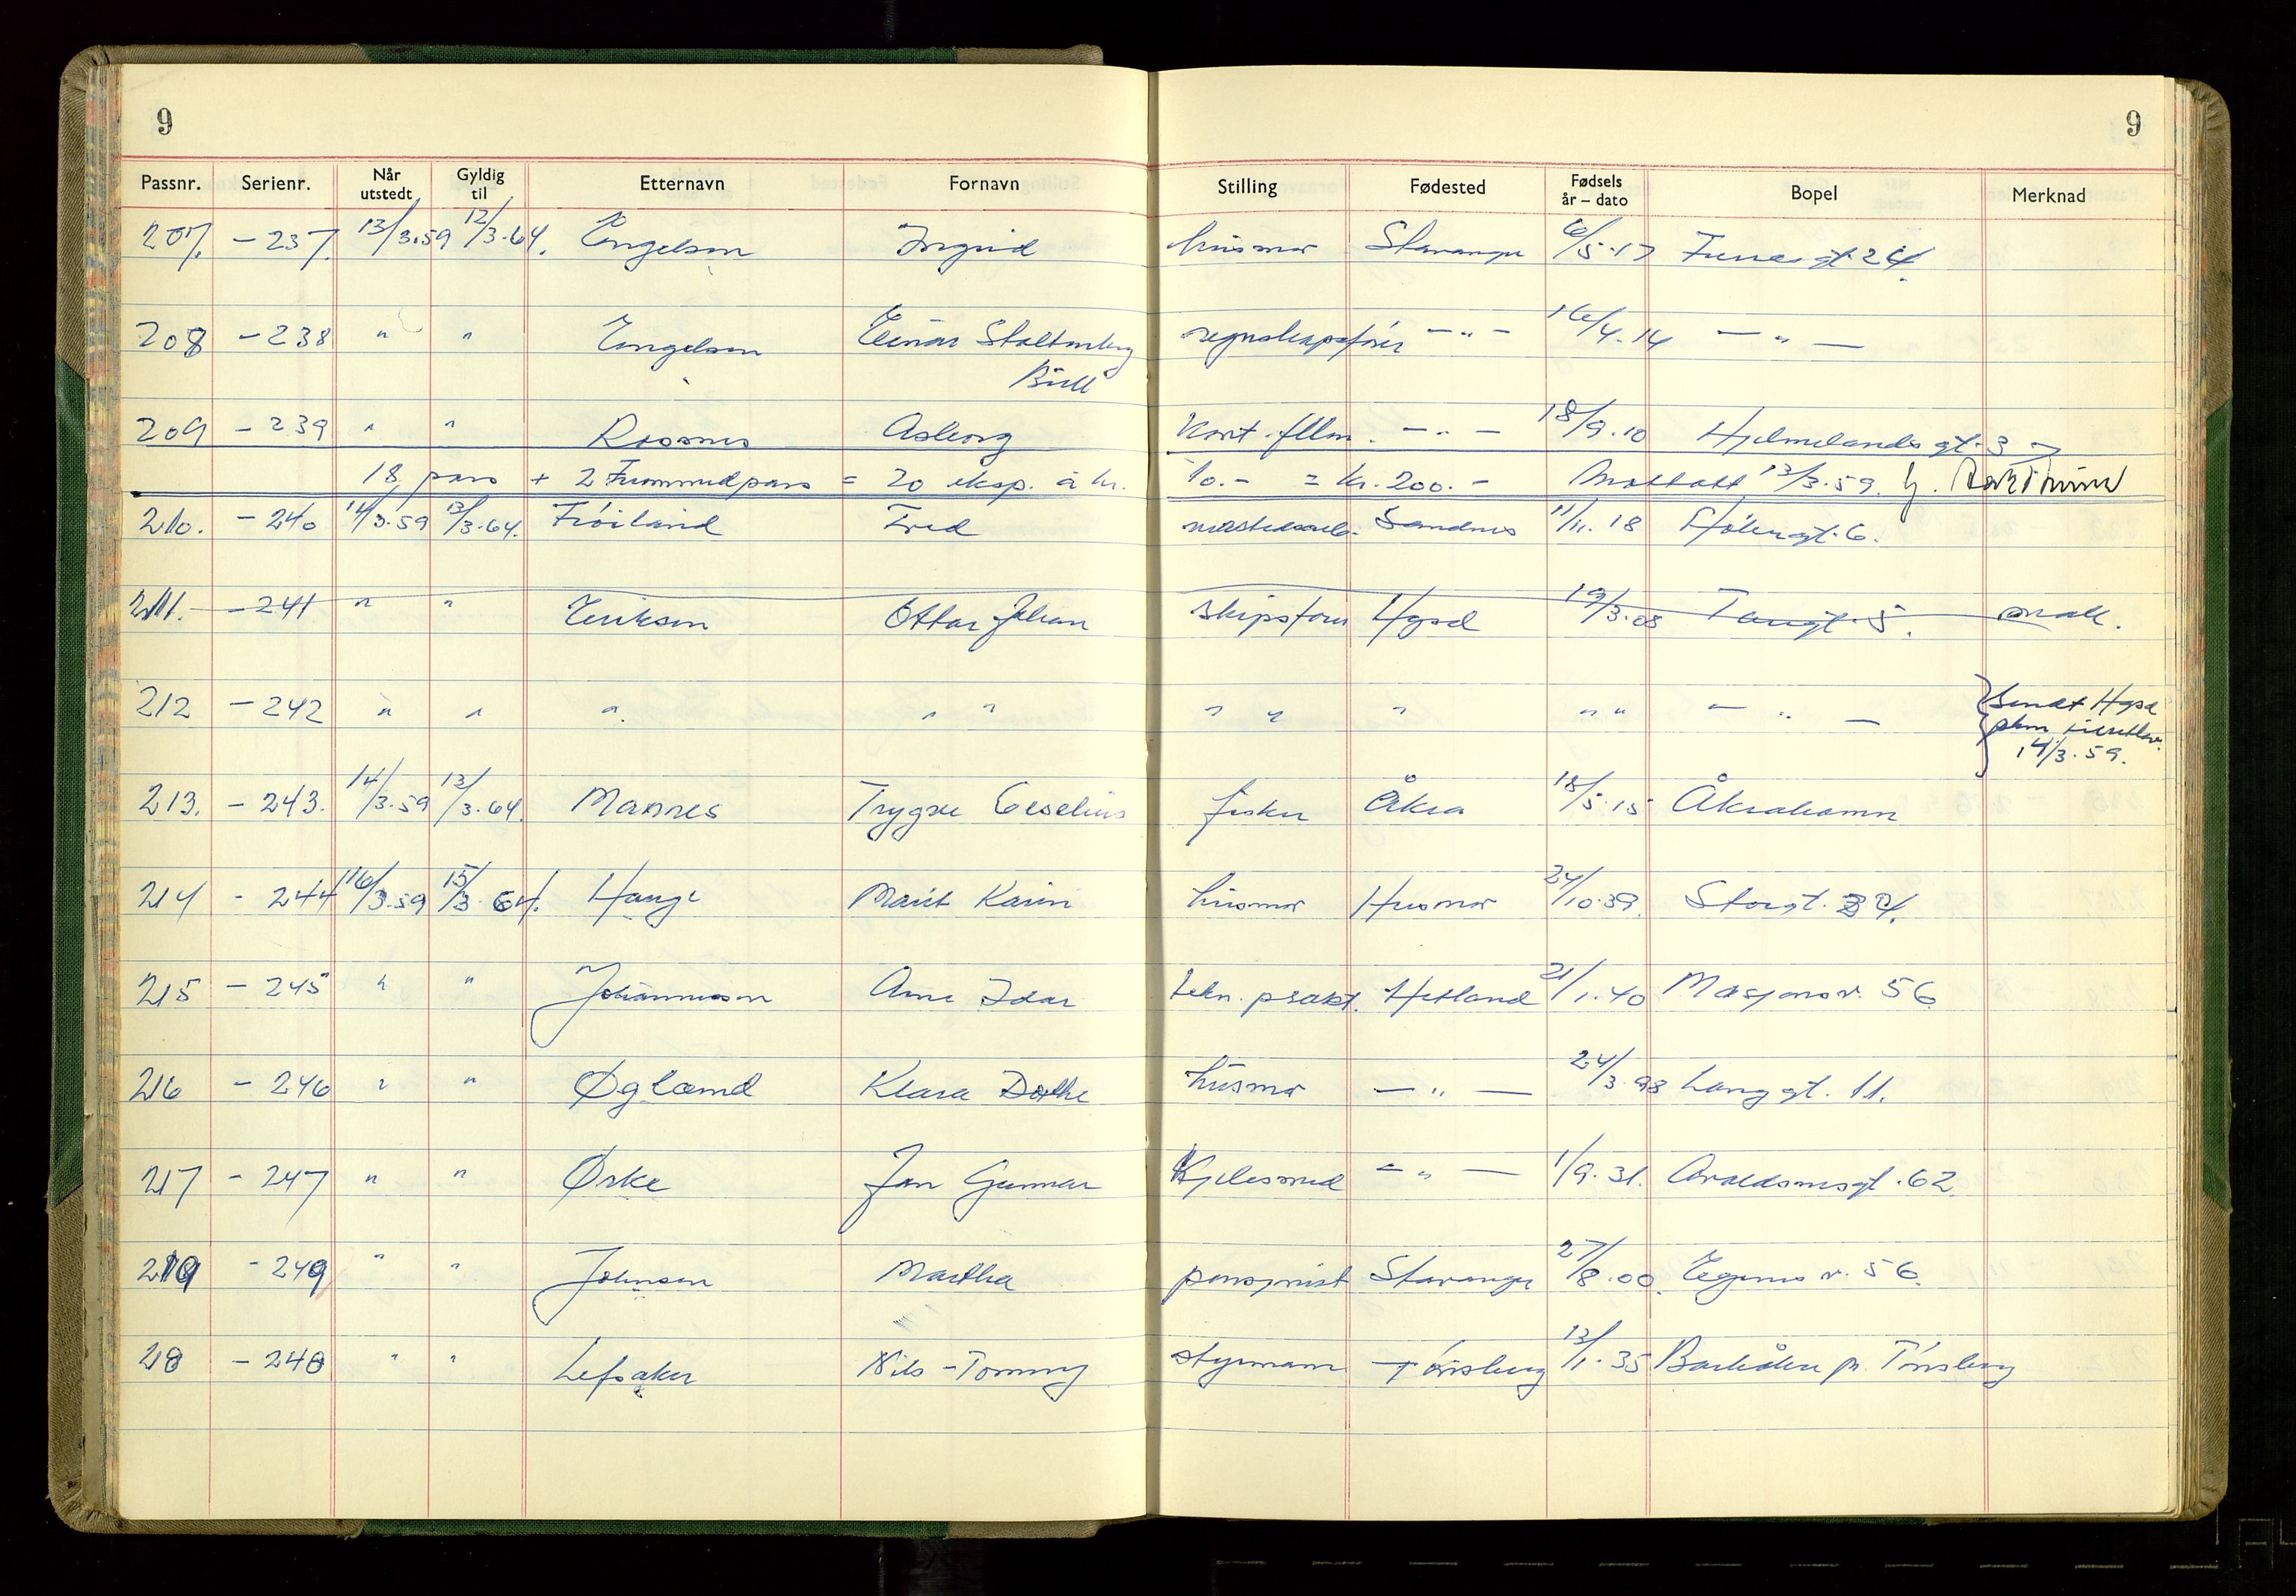 9 9
Passnr. Serienr. Når utstedt Gyldig til Etternavn Fornavn Stilling Fødested Fødsels år – dato Bopel Merknad
207. – 237. 13/3.59 12/3.64. Engelsen Ingrid husmor Stavanger 6/5.17 24.
208 – 238 " " Engelsen Einar Stoltenberg regnskapsfører – " – 16/4.14 – " –
Bull
209 – 239 " " Rossnes Asborg Kont.fllm. – " – 18/9.10 Hjelmelandsgt. 3
18 pass + 2 Fremmedpass = 20 eksp. à kr. 10.- = kr. 200.- Mottatt 13/3.59.
210. – 240 14/3.59 13/3.64. Frøiland Fred Sandnes 11/11.18 6.
211. – 241 " " Eriksen Ottar Johan skipsfører Hgsd 19/3.08 Tangt. 5. mak.
212 – 242 " " " " " " " " " " – " – Sendt Hgsd
14/3.59.
213. – 243. 14/3.59 13/3.64. Mannes Trygve Ceselius fisker Åkra 18/5.15 Åkrahamn
214 - 244 16/3.59 15/3.64. Hauge Marit Karin husmor Husmor 24/10.39. Storgt.
215 – 245 " " Johannesson Arne Idar tekn. prakt. Hetland 21/1.40 Misjonsv. 56
216 – 246 " " Øglænd Klara Dorthe husmor – " – 24/3.98 Langgt. 11.
217 - 247 " " Ørke Jan Gunnar Kjelesmed – " – 1/9.31. Avaldsnesgt. 62
219 - 249 " " Johnsen Martha pensjonist Stavanger 27/8.00. Eiganes v. 56.
218 – 248 " " Lefsaker Nils-Tommy styrmann Tønsberg 13/1.35 Barkåker pr. Tønsberg